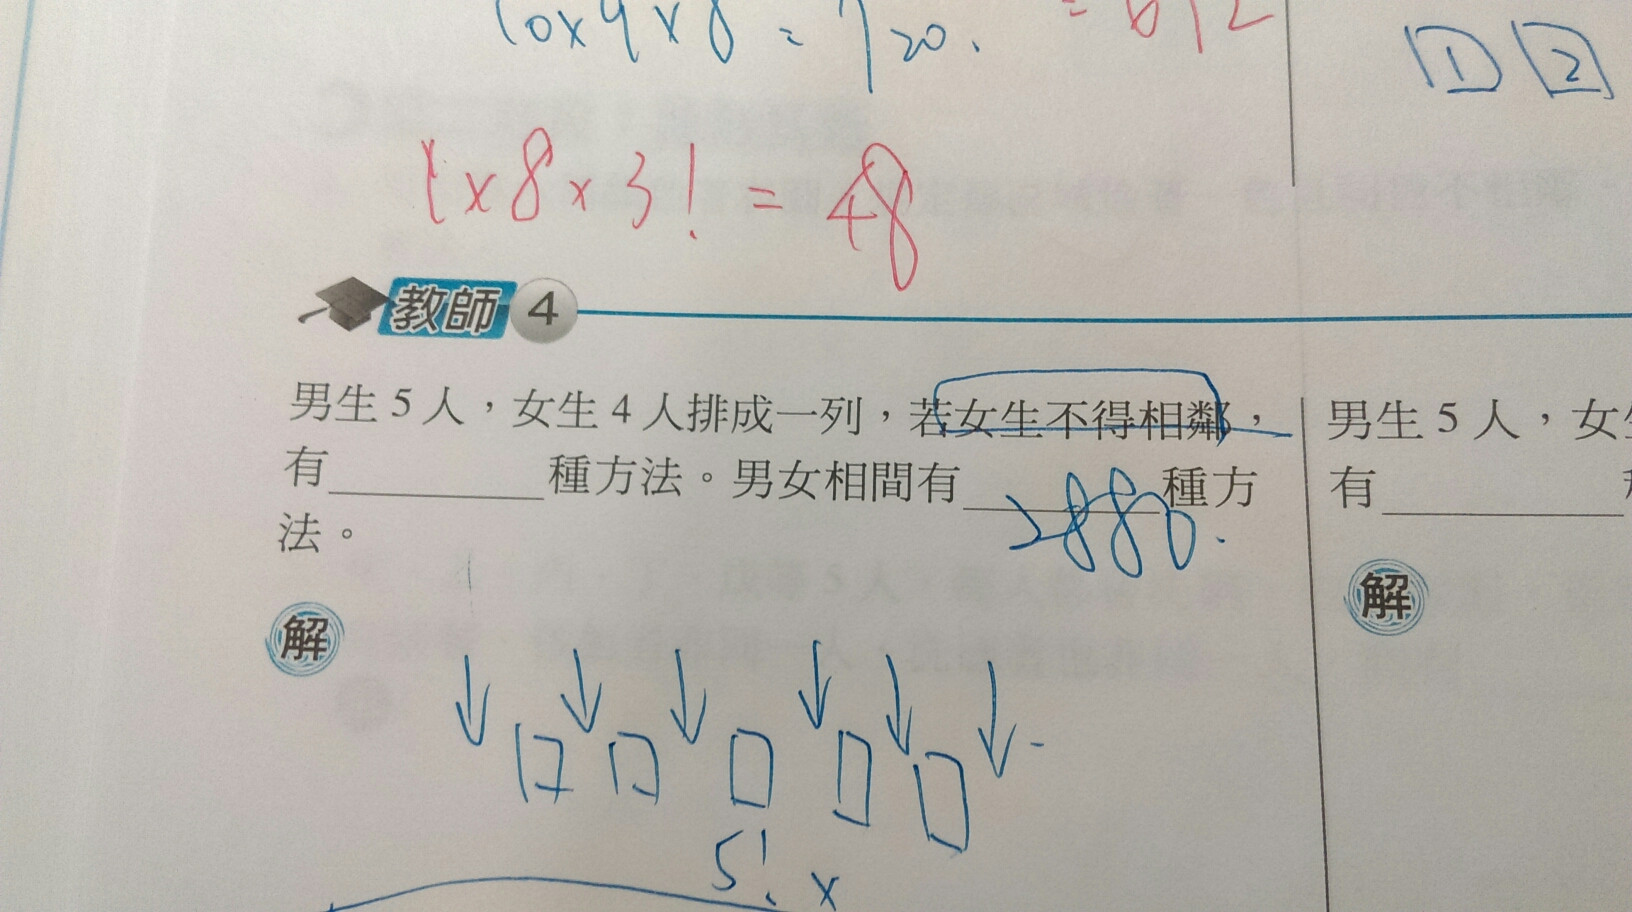 10x9x8=720.
=612
1 2
1x8x3!=48
教師 4
男生 5 人,女生 4 人排成一列,若女生不得相鄰,
有______種方法。男女相間有______種方
2880.
法。
解
5! x
男生 5 人,女
有______
解